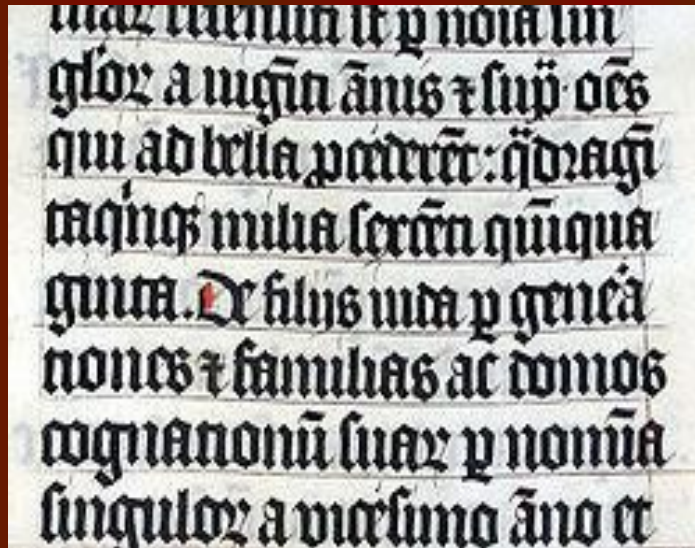 suaꝝ recensiti sūt ꝑ noīa sin
gl'oꝝ a uigīti ānis ⁊ sup̄ · oēs
qui ad bella ꝓcederēt : q̈dragī
taqinqꝫ milia sexcēti qūiqua
ginta . De filijs iuda ꝑ gen̄ea
tiones ⁊ familias ac domos
cognationū suaꝝ ꝑ nomīa
singuloꝝ a vicesimo āno et